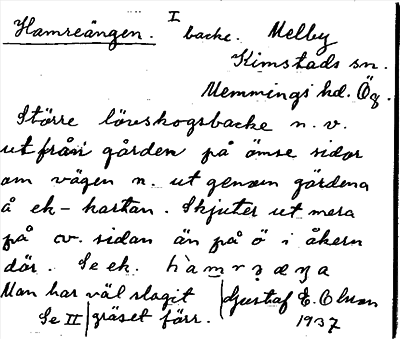 Hamreängen. I backe. Melby
Kimstads sn.
Memmings hd. Ög.
Större lövskogsbacke n. v.
ut från gården på ömse sidor
om vägen n. ut genom gärdena
å ek-kartan. Skjuter ut mera
på v. sidan än på ö i åkern
där. Se ek. hàmræŋa
Man har väl slagit
Se II gräset förr.
Gustaf E. Olsson
1937